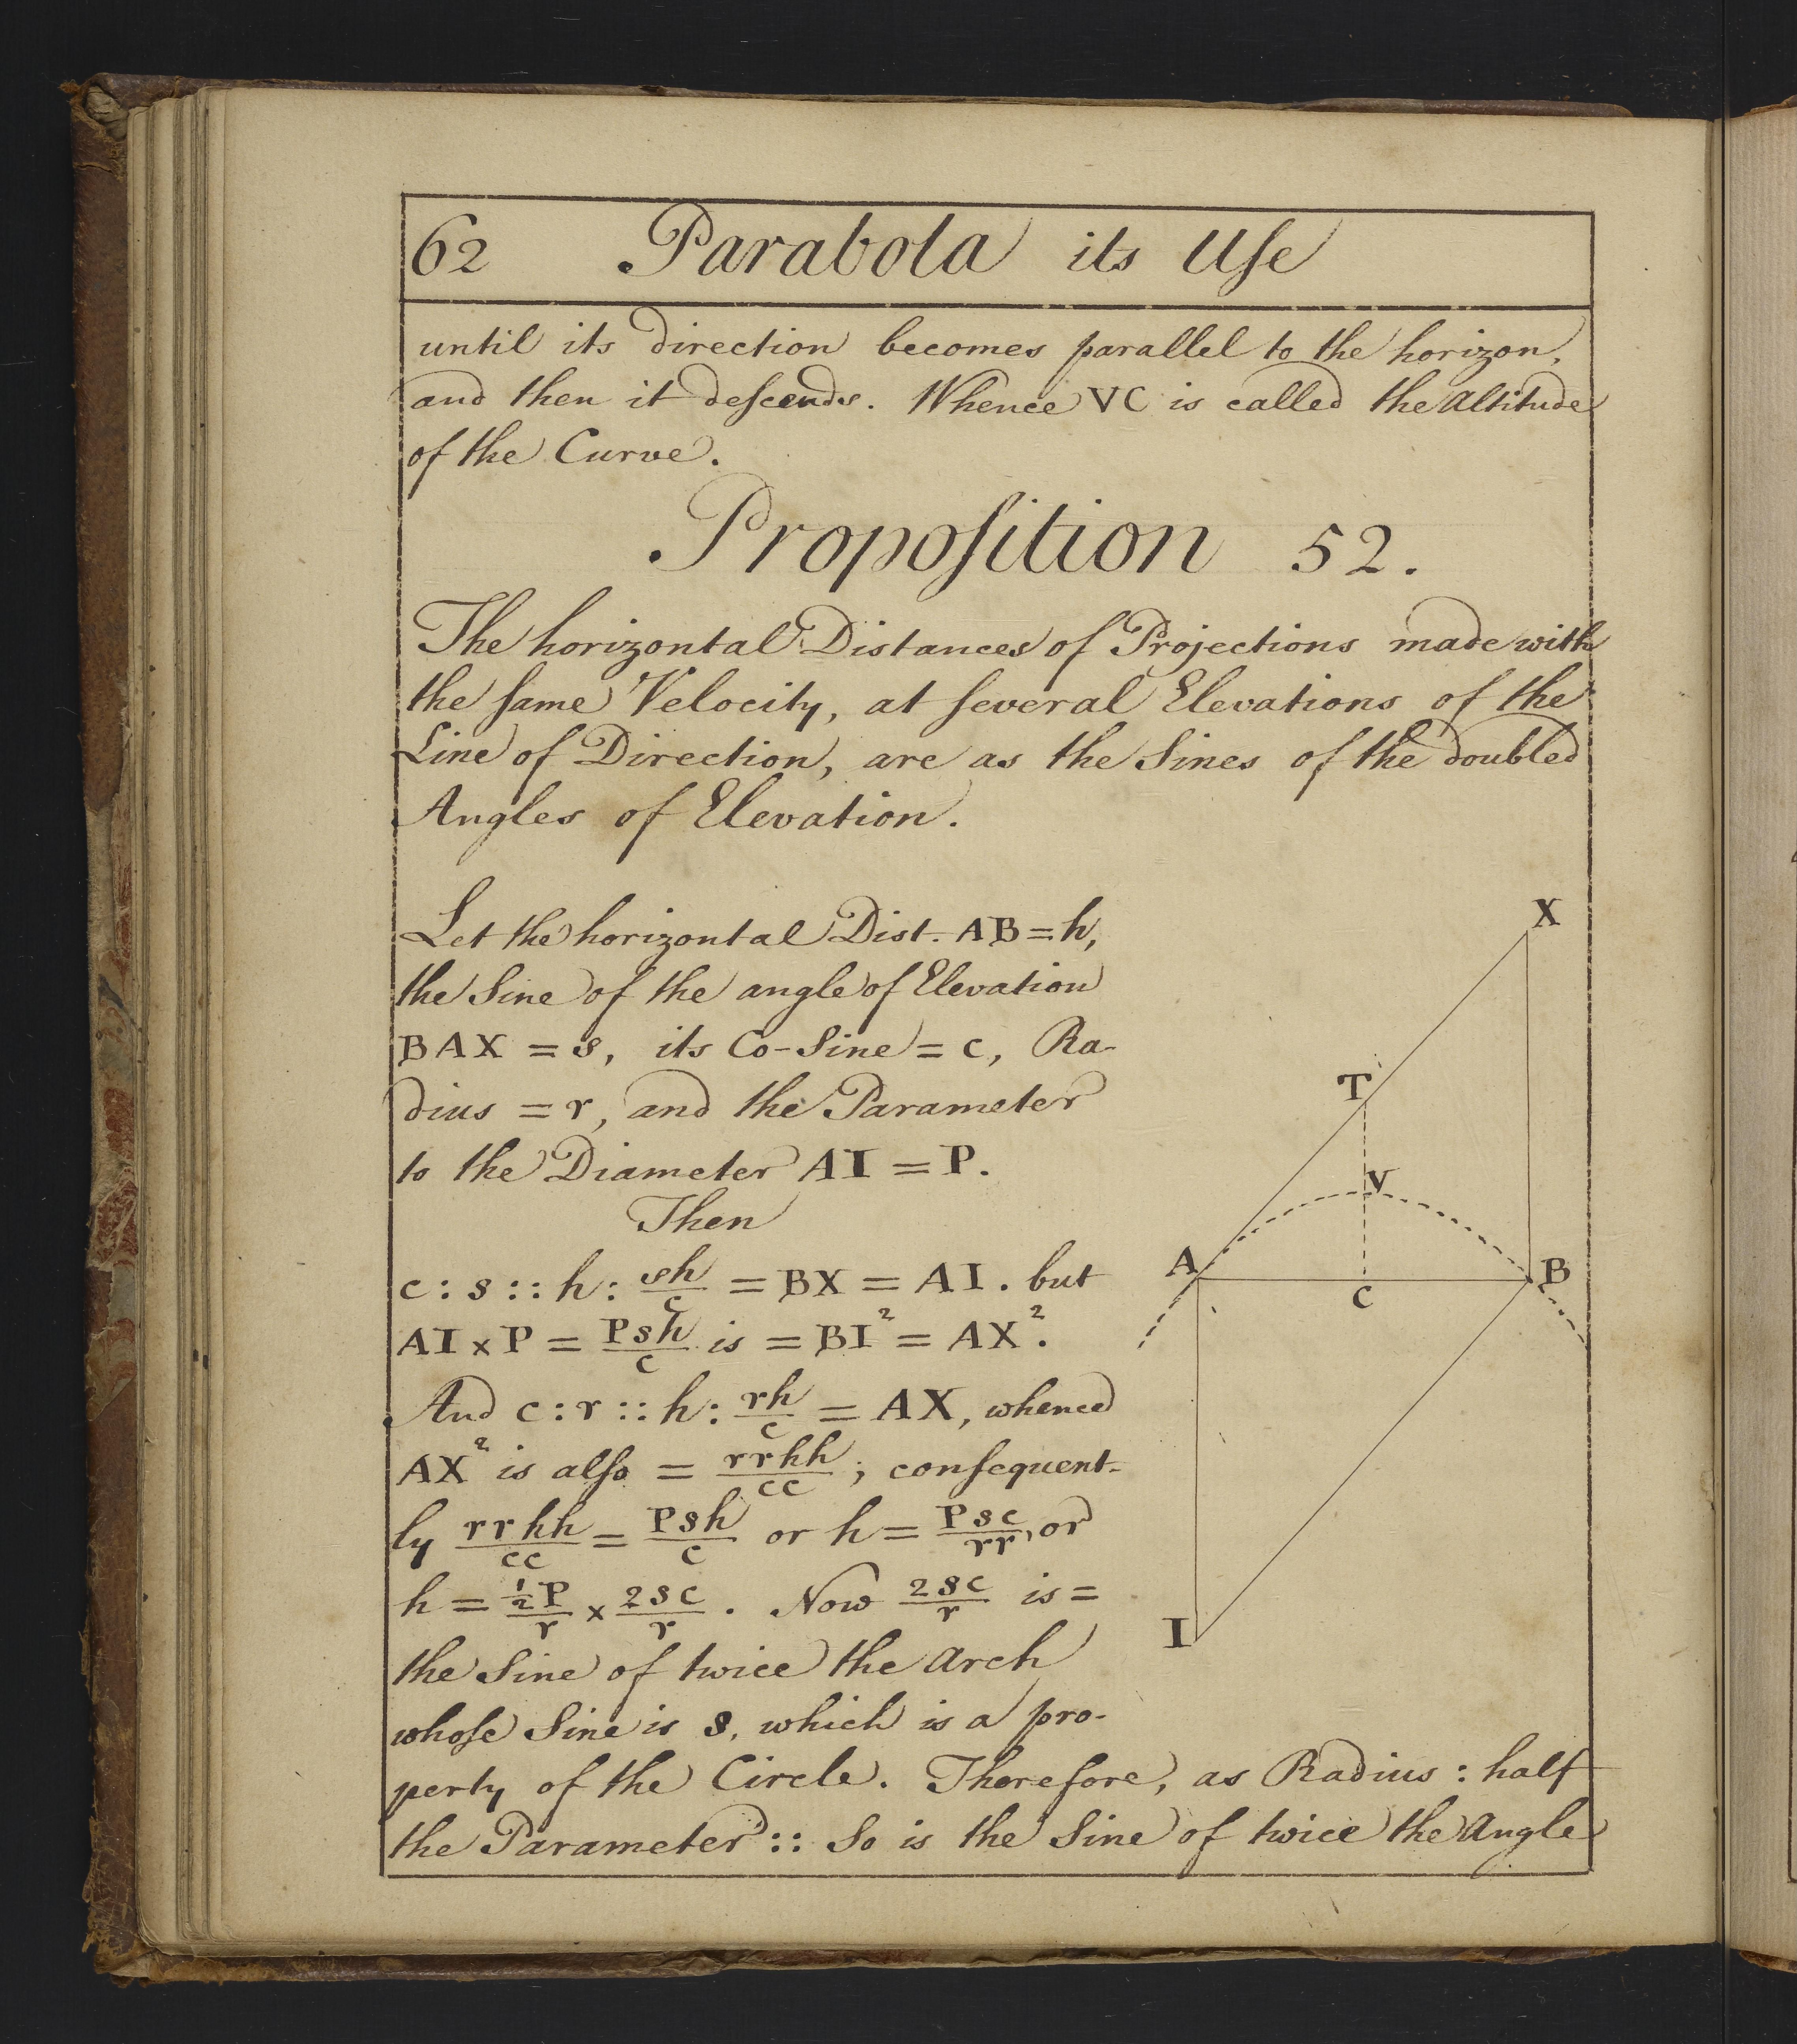 62 Parabola its Uſe
until its direction becomes parallel to the horizon,
and then it deſcends. Whence VC is called the Altitude
of the Curve.
Propoſition 52.
The horizontal Distances of Projections made with
the ſame Velocity, at ſeveral Elevations of the
Line of Direction, are as the Sines of the doubled
Angles of Elevation.
Let the horizontal Dist. AB = h,
the Sine of the angle of Elevation
BAX = s, its Co-Sine = c, Ra-
dius = r, and the Parameter
to the Diameter AI = P.
Then
c : s :: h : sh/c = BX = AI. but
AI × P = Psh/c is = BI² = AX².
And c : r :: h : rh/c = AX, whence
AX² is alſo = rrhh/cc; conſequent-
ly rrhh/cc = Psh/c or h = Psc/rr, or
h = ½P/r × 2sc/r. Now 2sc/r is =
the Sine of twice the Arch
whoſe Sine is s, which is a pro-
perty of the Circle. Therefore, as Radius : half
the Parameter :: So is the Sine of twice the Angle
X
T
V
A
B
C
I